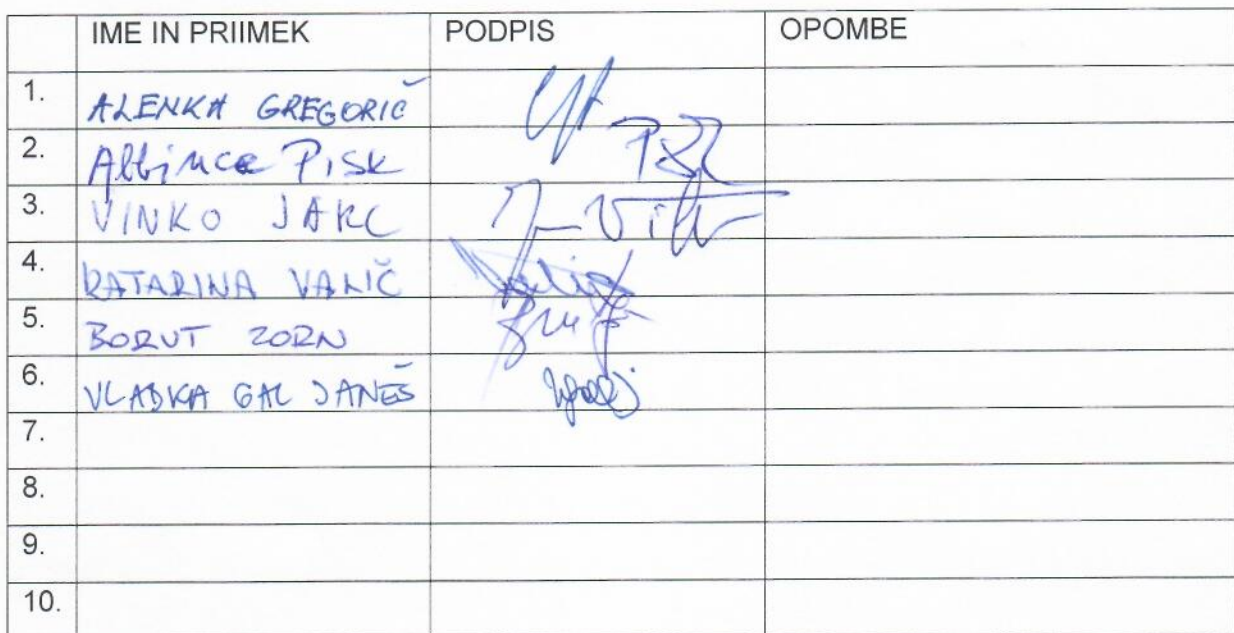 IME IN PRIIMEK PODPIS OPOMBE
1. ALENKA GREGORIČ
2. Albinca PISK
3. VINKO JARC
4. KATARINA VALIČ
5. BORUT ZORN
6. VLADKA GAL JANEŠ
7.
8.
9.
10.